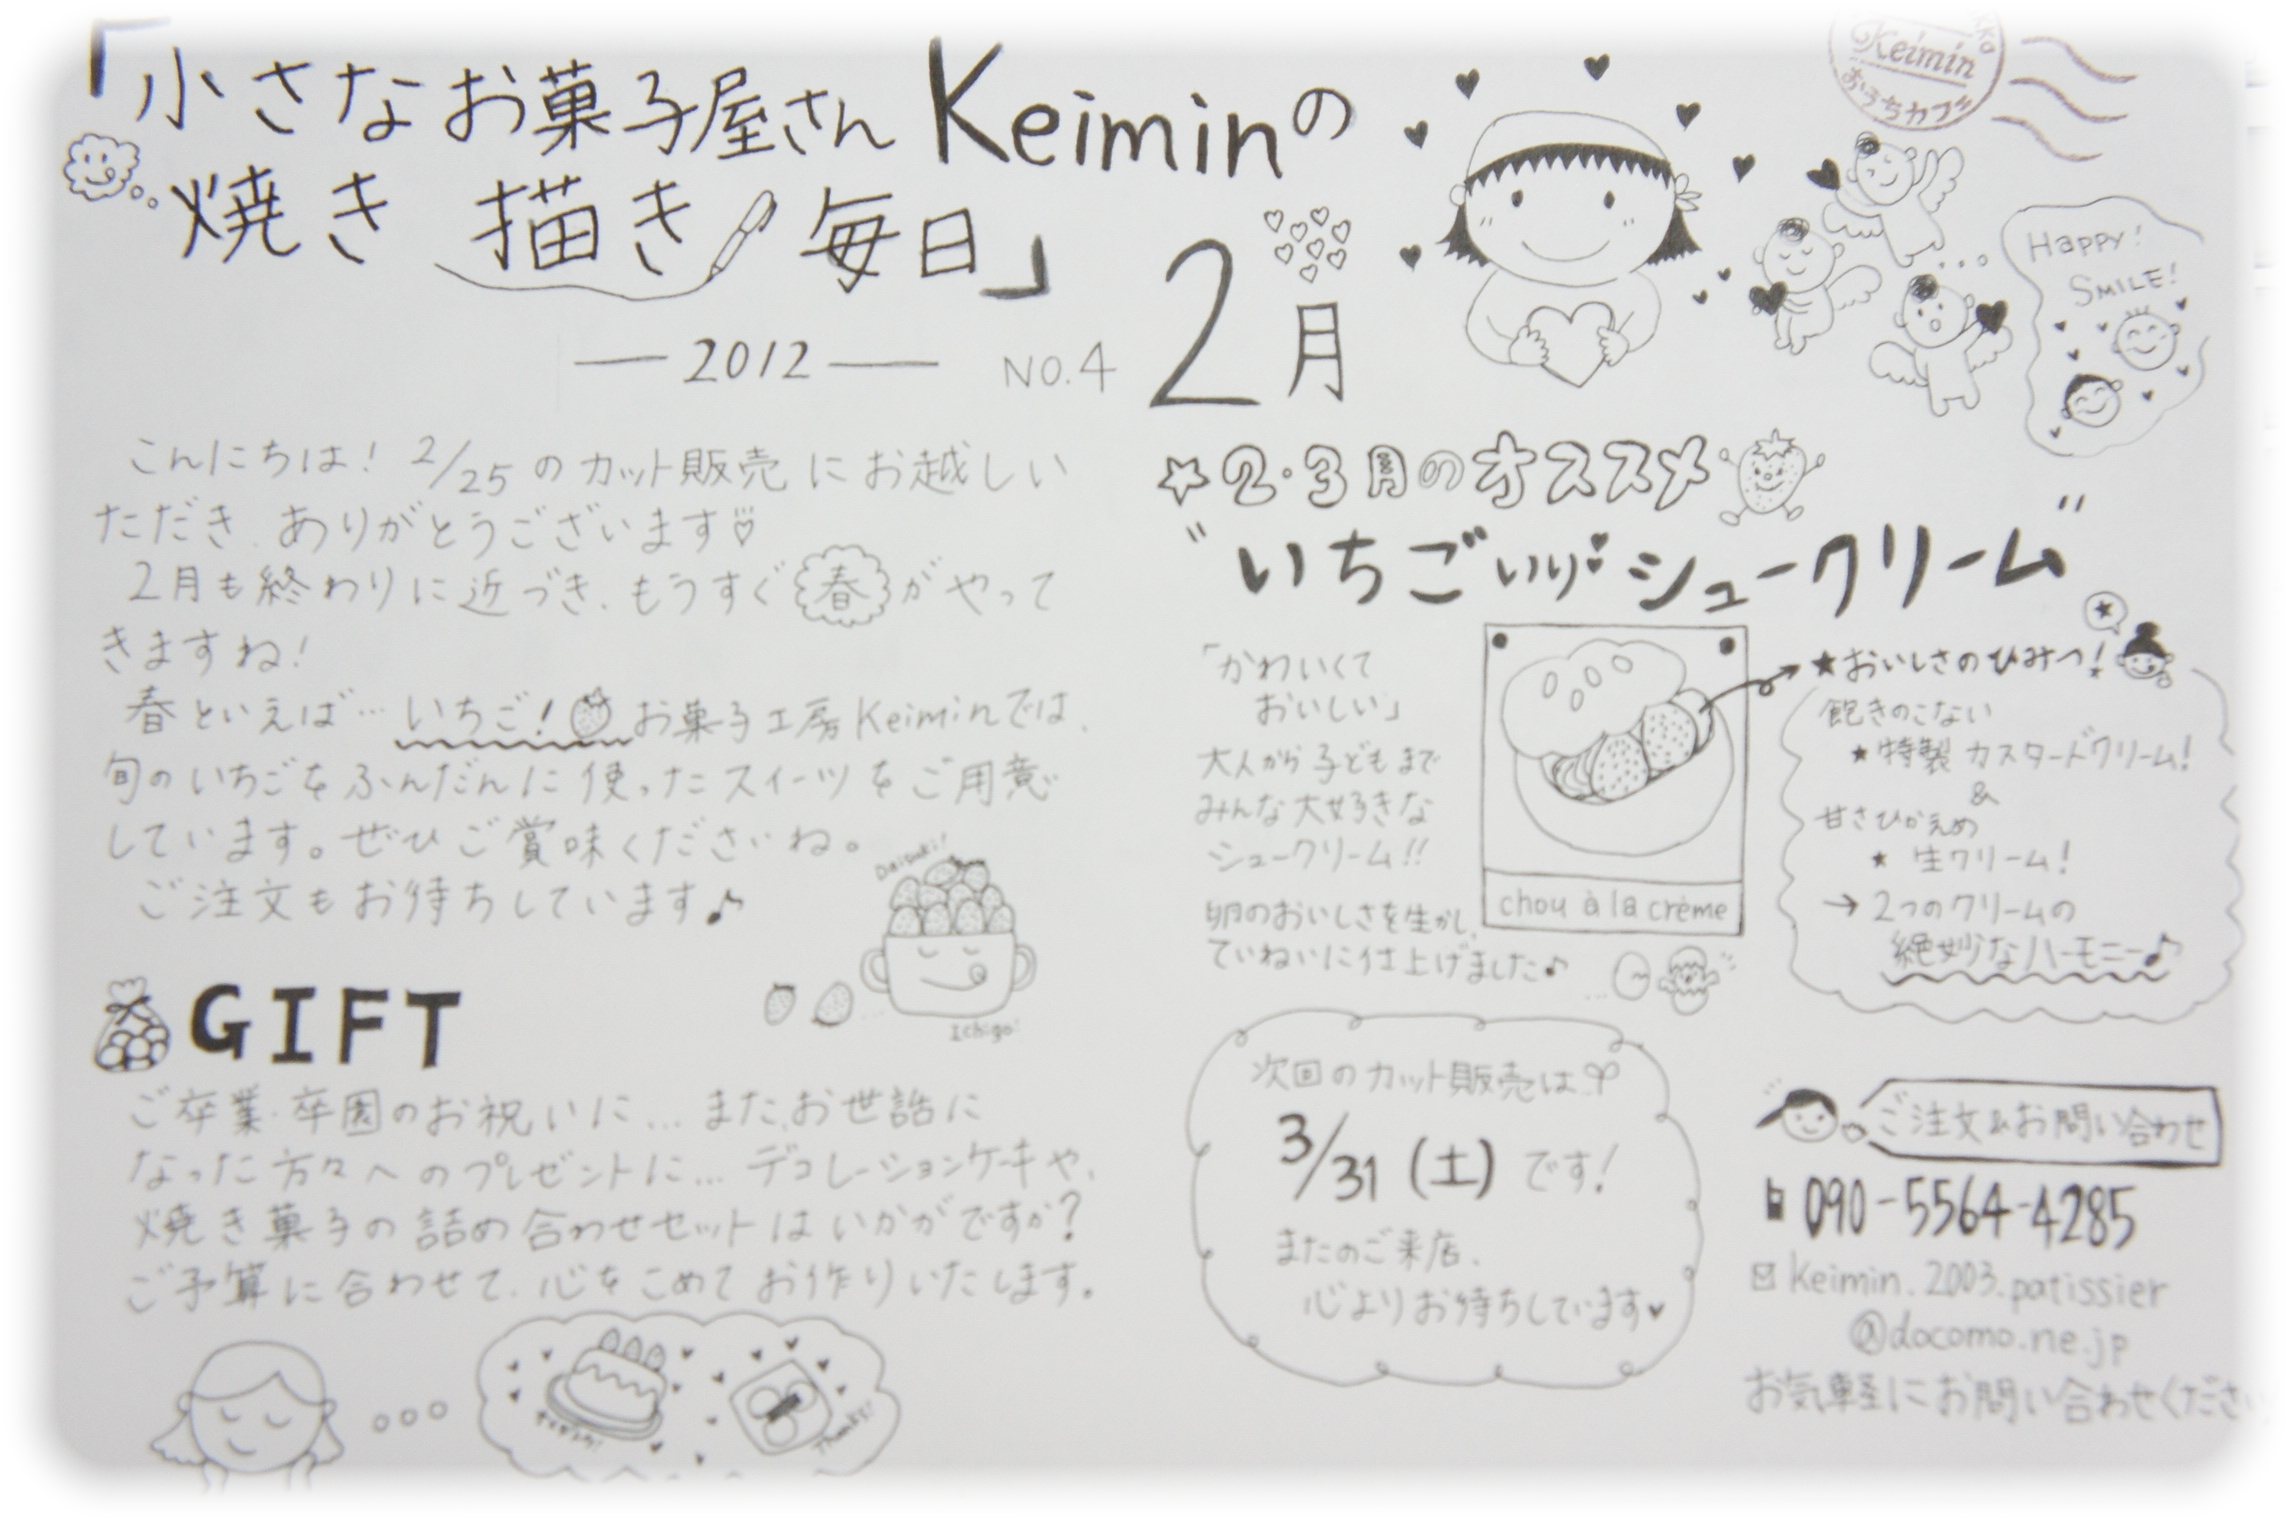 「小さなお菓子屋さん Keiminの
焼き 描き 毎日」
— 2012 — NO.4
2月
Keimin
おうちカフェ
Happy!
SMILE!
こんにちは! 2/25のカット販売にお越しい
ただき、ありがとうございます
2月も終わりに近づき、もうすぐ春がやって
きますね!
春といえば… いちご! お菓子工房Keiminでは、
旬のいちごをふんだんに使ったスイーツをご用意
しています。ぜひご賞味くださいね。
ご注文もお待ちしています♪
Daisuki!
Ichigo!
GIFT
ご卒業・卒園のお祝いに… また、お世話に
なった方々へのプレゼントに… デコレーションケーキや、
焼き菓子の詰め合わせセットはいかがですか?
ご予算に合わせて、心をこめてお作りいたします。
オメデトウ!
Thanks!
☆2・3月のオススメ
"いちごいり♥シュークリーム"
「かわいくて
おいしい」
大人から子どもまで
みんな大好きな
シュークリーム!!
卵のおいしさを生かし、
ていねいに仕上げました♪
chou à la crème
★おいしさのひみつ!
飽きのこない
★特製カスタードクリーム!
&
甘さひかえめ
★ 生クリーム!
→ 2つのクリームの
絶妙なハーモニー♪
次回のカット販売は
3/31 (土) です!
またのご来店、
心よりお待ちしています♥
ご注文&お問い合わせ
090-5564-4285
keimin.2003.patissier
@docomo.ne.jp
お気軽にお問い合わせください